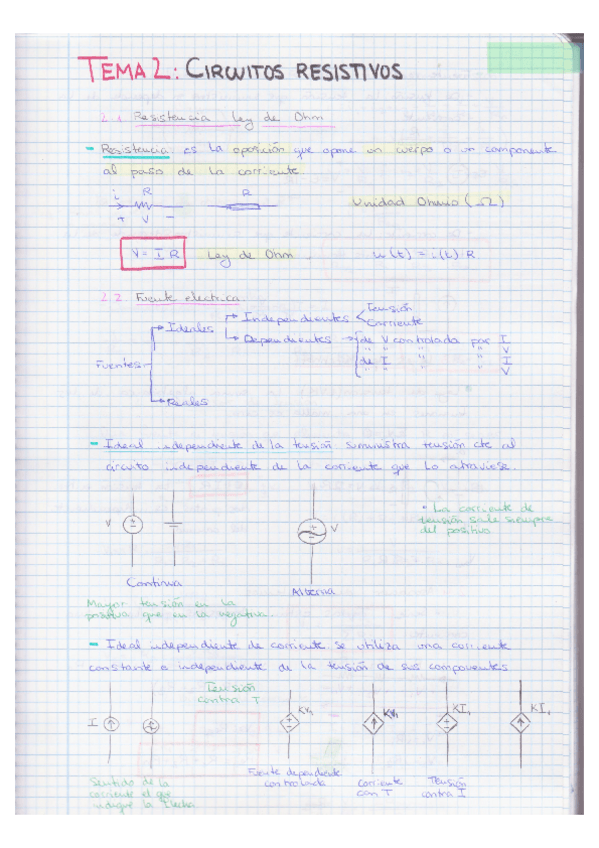 TEMA 2: CIRCUITOS RESISTIVOS
2.1 Resistencia Ley de Ohm
- Resistencia: es la oposición que opone un cuerpo o un componente
al paso de la corriente.
i R R Unidad Ohmio (Ω)
+ V -
V = I R Ley de Ohm u(t) = i(t) R
2.2 Fuente electrica.
Tensión
Independientes
Ideales Corriente
Dependientes de V controlada por I
" " " " V
Fuentes de I " " I
" " " " V
Reales
- Ideal independiente de la tensión suministra tensión cte al
circuito independiente de la corriente que lo atraviese.
• La corriente de
V V tensión sale siempre
del positivo
Continua Alterna
Mayor tensión en la
positiva que en la negativa.
- Ideal independiente de corriente se utiliza una corriente
constante e independiente de la tensión de sus componentes
Tensión
contra T
I KV₁ KV₁ KI₁ KI₁
Fuente dependiente
controlada
Corriente
con T
Tensión
contra I
Sentido de la
corriente el que
indique la flecha.